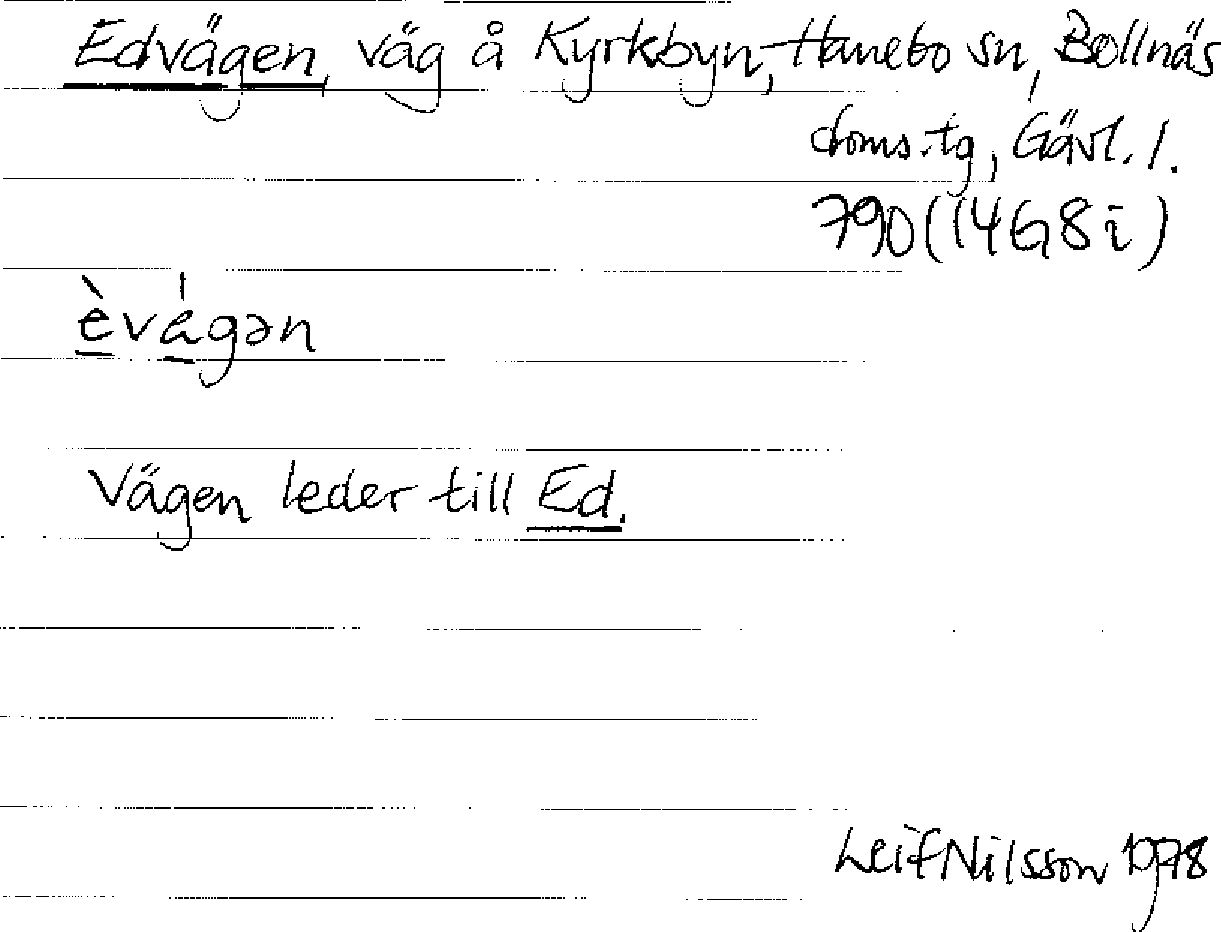 Edvägen, väg å Kyrkbyn, Hanebo sn, Bollnäs
doms.tg, Gävl. l.
790 (14G8i)
èvágən
Vägen leder till Ed.
Leif Nilsson 1978